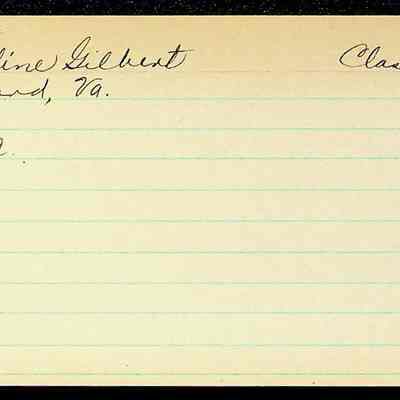 line Gilbert Clas
ard, Va.